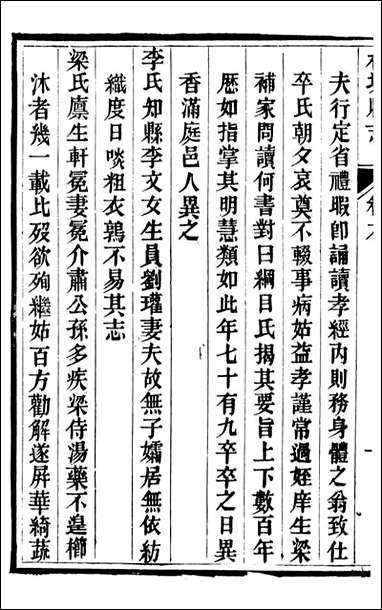 夫行定省禮暇卽誦讀孝經內則務身體之翁致仕
卒氏朝夕哀奠不輟事病姑益孝謹常過姪庠生梁
補家問讀何書對曰綱目氏揭其要旨上下數百年
歷如指掌其明慧類如此年七十有九卒卒之日異
香滿庭邑人異之
李氏知縣李文女生員劉瓘妻夫故無子孀居無依紡
織度日啖粗衣鶉不易其志
梁氏廪生軒冕妻冕介肅公孫多疾梁侍湯藥不遑櫛
沐者幾一載比歿欲殉繼姑百方勸解遂屏華綺蔬